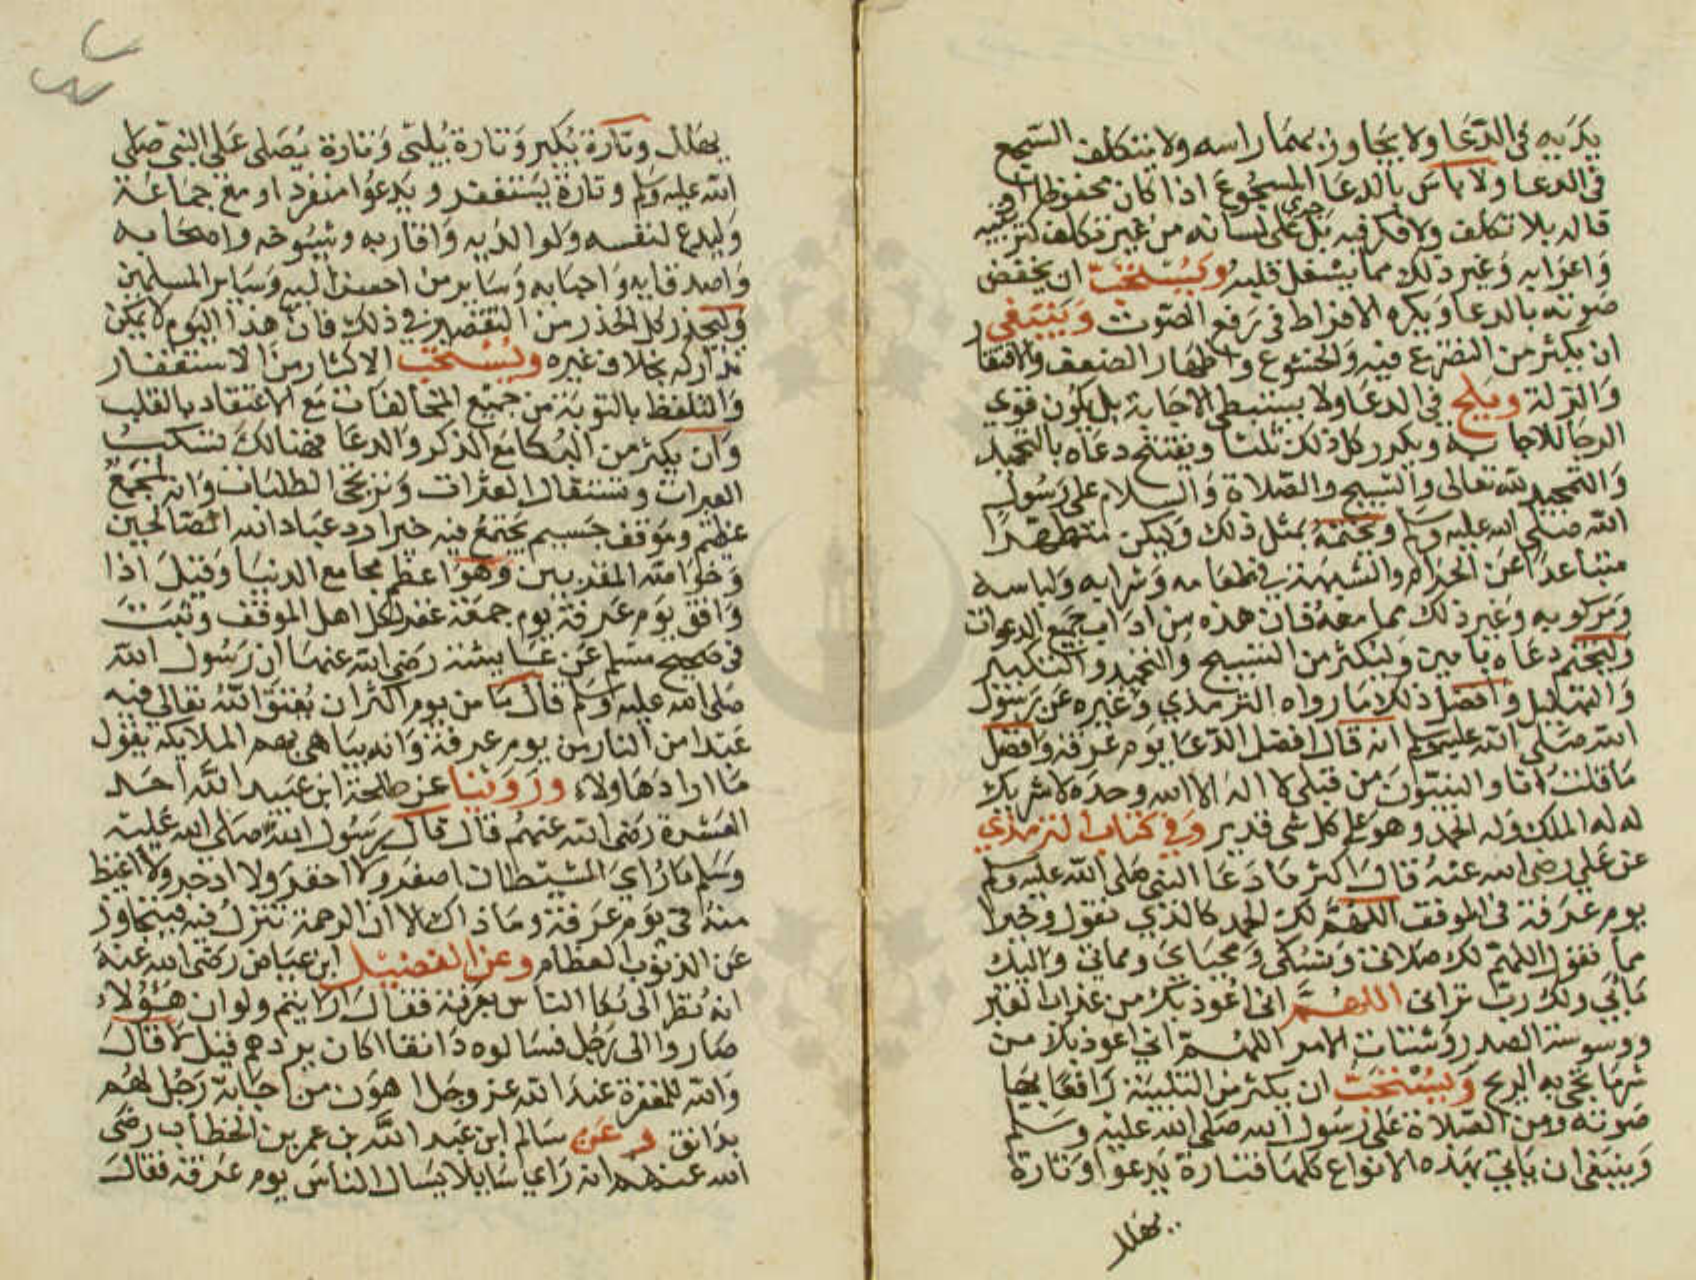 يديه في الدعا ولا يجاوز بهما راسه ولا يتكلف السجع
في الدعا ولا باس بالدعا المسجوع اذا كان محفوظا او
قاله بلا تكلف ولا فكر فيه بل جرى على لسانه من غير تكلف لترتيبه
واعرابه وغير ذلك مما يشغل قلبه ويستحب ان يخفض
صوته بالدعا ويكره الافراط في رفع الصوت وينبغي
ان يكثر من التضرع فيه والخشوع واظهار الضعف والافتقار
والذلة ويلح في الدعا ولا يستبطي الاجابة بل يكون قوي
الرجا للاجابة ويكرر كل ذلك ثلثا ويفتتح دعاه بالتحميد
والتمجيد لله تعالى والتسبيح والصلاة والسلام على رسول
الله صلى الله عليه وسلم ويختمه بمثل ذلك وليكن متطهرا
متباعدا عن الحرام والشبهة في طعامه وشرابه ولباسه
ومركوبه وغير ذلك مما معه فان هذه من اداب جميع الدعوات
وليختم دعاه بامين وليكثر من التسبيح والتحميد والتكبير
والتهليل وافضل ذلك ما رواه الترمذي وغيره عن رسول
الله صلى الله عليه وسلم انه قال افضل الدعا يوم عرفة وافضل
ما قلت انا والنبيون من قبلي لا اله الا الله وحده لا شريك
له له الملك وله الحمد وهو على كل شي قدير وفي كتاب الترمذي
عن علي رضي الله عنه قال اكثر ما دعا النبي صلى الله عليه وسلم
يوم عرفة في الموقف اللهم لك الحمد كالذي نقول وخيرا
مما نقول اللهم لك صلاتي ونسكي ومحياي ومماتي واليك
مابي ولك رب تراثي اللهم اني اعوذ بك من عذاب القبر
ووسوسة الصدر وشتات الامر اللهم اني اعوذ بك من
شر ما تجي به الريح ويستحب ان يكثر من التلبية رافعا بها
صوته ومن الصلاة على رسول الله صلى الله عليه وسلم
وينبغي ان ياتي بهذه الانواع كلها فتارة يدعوا وتارة
يهلل
يهلل وتارة يكبر وتارة يلبي وتارة يصلي على النبي صلى
الله عليه وسلم وتارة يستغفر ويدعوا منفرد او مع جماعة
وليدع لنفسه ولوالديه واقاربه وشيوخه واصحابه
واصدقايه واحبابه وساير من احسن اليه وساير المسلمين
وليحذر كل الحذر من التقصير في ذلك فان هذا اليوم لا يمكن
تداركه بخلاف غيره ويستحب الاكثار من الاستغفار
والتلفظ بالتوبة من جميع المخالفات مع الاعتقاد بالقلب
وان يكثر من البكا مع الذكر والدعا فهنالك تسكب
العبرات وتستقال العثرات وترتجى الطلبات وانه لمجمع
عظيم وموقف جسيم يجتمع فيه خيار عباد الله الصالحين
وخواصه المقربين وهو اعظم مجامع الدنيا وقيل اذا
وافق يوم عرفة يوم جمعة غفر لكل اهل الموقف وثبت
في صحيح مسلم عن عايشة رضي الله عنها ان رسول الله
صلى الله عليه وسلم قال ما من يوم اكثر ان يعتق الله تعالى فيه
عبدا من النار من يوم عرفة وانه يباهي بهم الملايكة يقول
ما اراد هاولاء وروينا عن طلحة ابن عبيد الله احد
العشرة رضي الله عنهم قال قال رسول الله صلى الله عليه
وسلم ما راي الشيطان اصغر ولا احقر ولا ادحر ولا اغيظ
منه في يوم عرفة وما ذاك الا ان الرحمة تنزل فيه فيتجاوز
عن الذنوب العظام وعن الفضيل ابن عياض رضي الله عنه
انه نظر الى بكا الناس بعرفة فقال ارايتم ولو ان هؤلاء
صاروا الى رجل فسالوه دانقا اكان يردهم قيل لا قال
والله للمغفرة عند الله عز وجل اهون من اجابة رجل لهم
بدانق وعن سالم ابن عبد الله بن عمر بن الخطاب رضي
الله عنهم انه راي سايلا يسال الناس يوم عرفة فقال